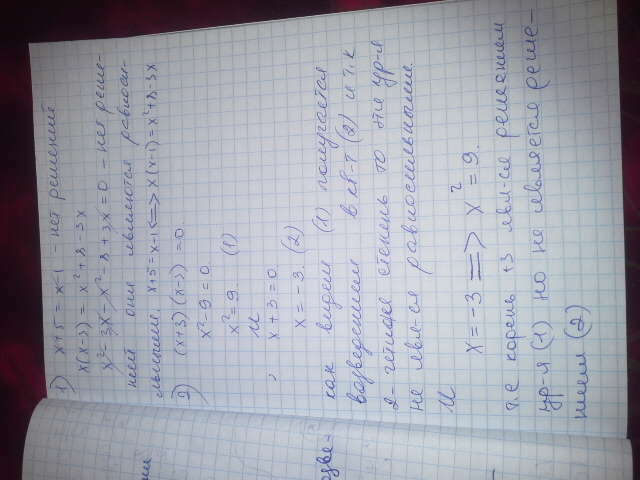 1) x+5 = x-1 - нет решений
x(x-3) = x²+8-3x
x²-3x-x²-8+3x=0 - нет реше-
ний они являются равноси-
льными. x+5=x-15 => x(x-1)=x²+8-3x
2) (x+3)(x-3)=0.
x²-9=0
x²=9 (1)
и
, x+3=0
x=-3. (2)
как видим (1) получается
возведением в кв-т (2) и т.к
2- четная степень то эти ур-я
не явл-ся равносильными.
И x=-3 => x²=9.
т.е корень +3 явл-ся решением
ур-я (1) но не является реше-
нием (2)
озве-